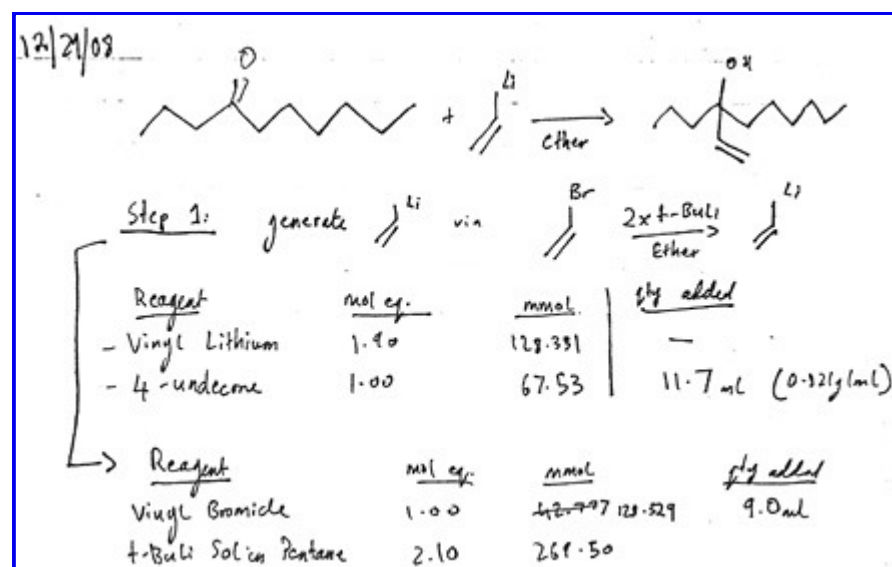 12/29/08
O
Li
OH
+
Ether
Step 1: generate Li via Br 2x t-BuLi Li
Ether
Reagent mol eq. mmol qty added
- Vinyl Lithium 1.90 128.331 —
- 4-undecone 1.00 67.53 11.7 ml (0.821g/ml)
Reagent mol eq. mmol qty added
Vinyl Bromide 1.00 128.529 9.0ml
t-BuLi Sol in Pentane 2.10 269.50